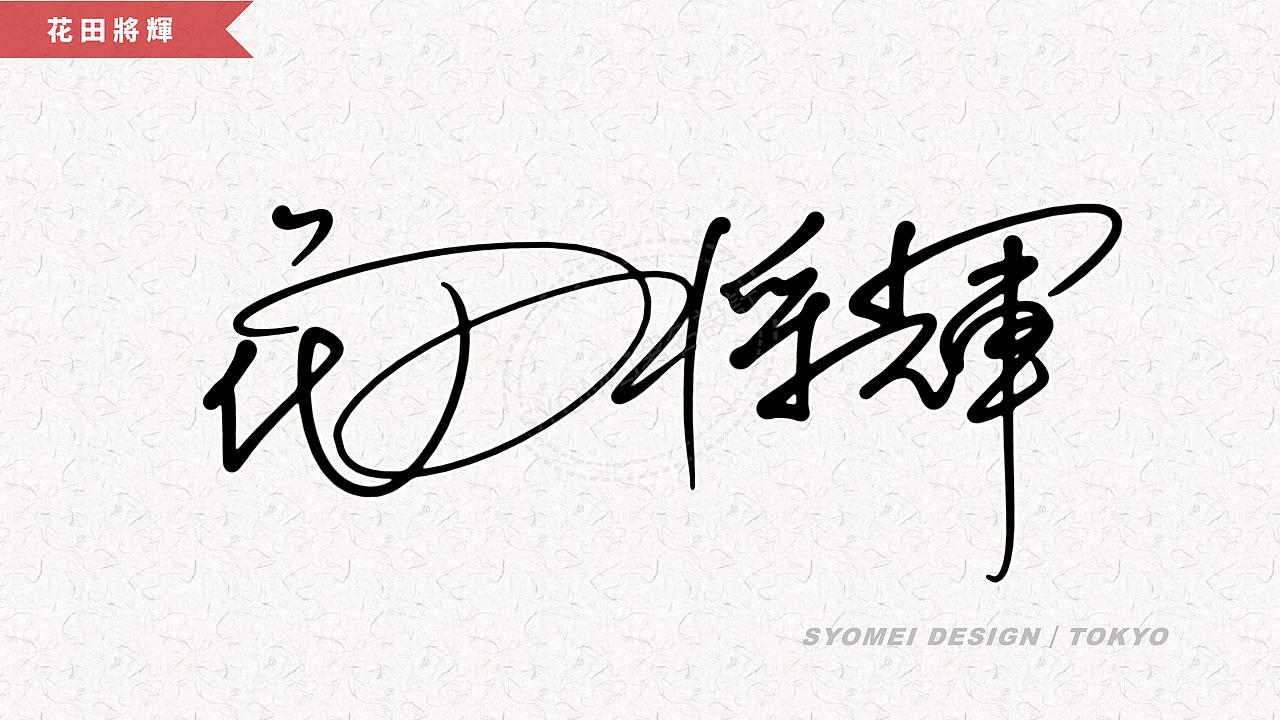 花田將輝
花田将輝
SYOMEI DESIGN | TOKYO